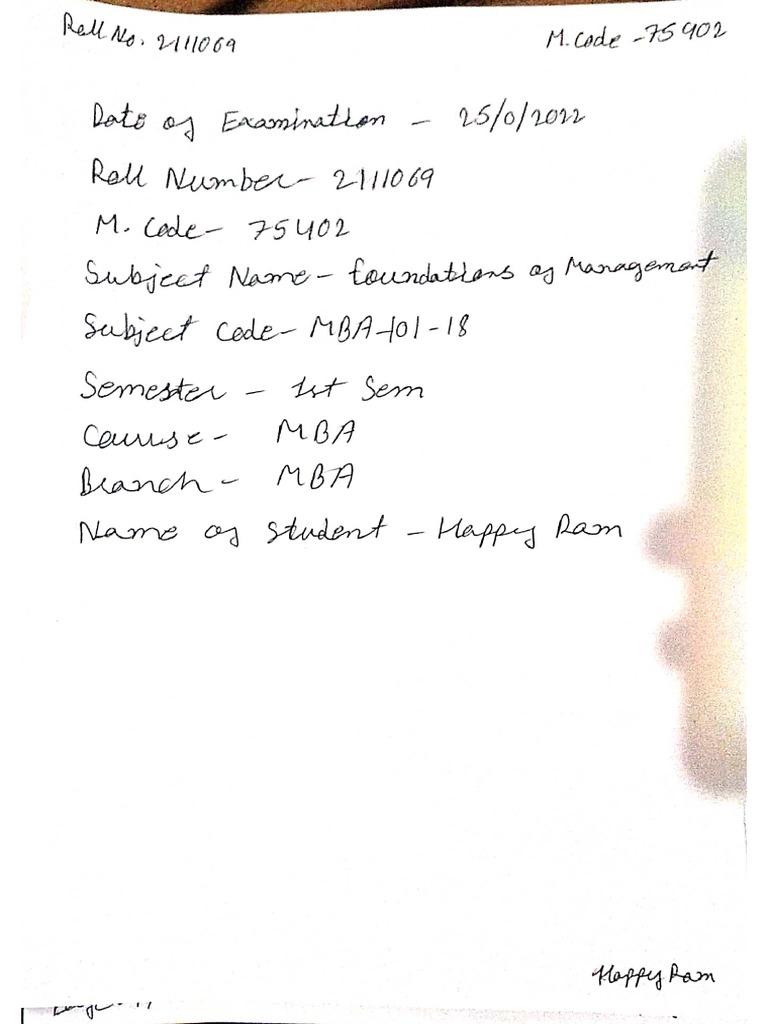 Roll No. 2111069
M. Code - 75402
Date of Examination - 25/0/2022
Roll Number - 2111069
M. Code - 75402
Subject Name - foundations of Management
Subject Code - MBA-101-18
Semester - 1st Sem
Course - MBA
Branch - MBA
Name of Student - Happy Ram
Happy Ram